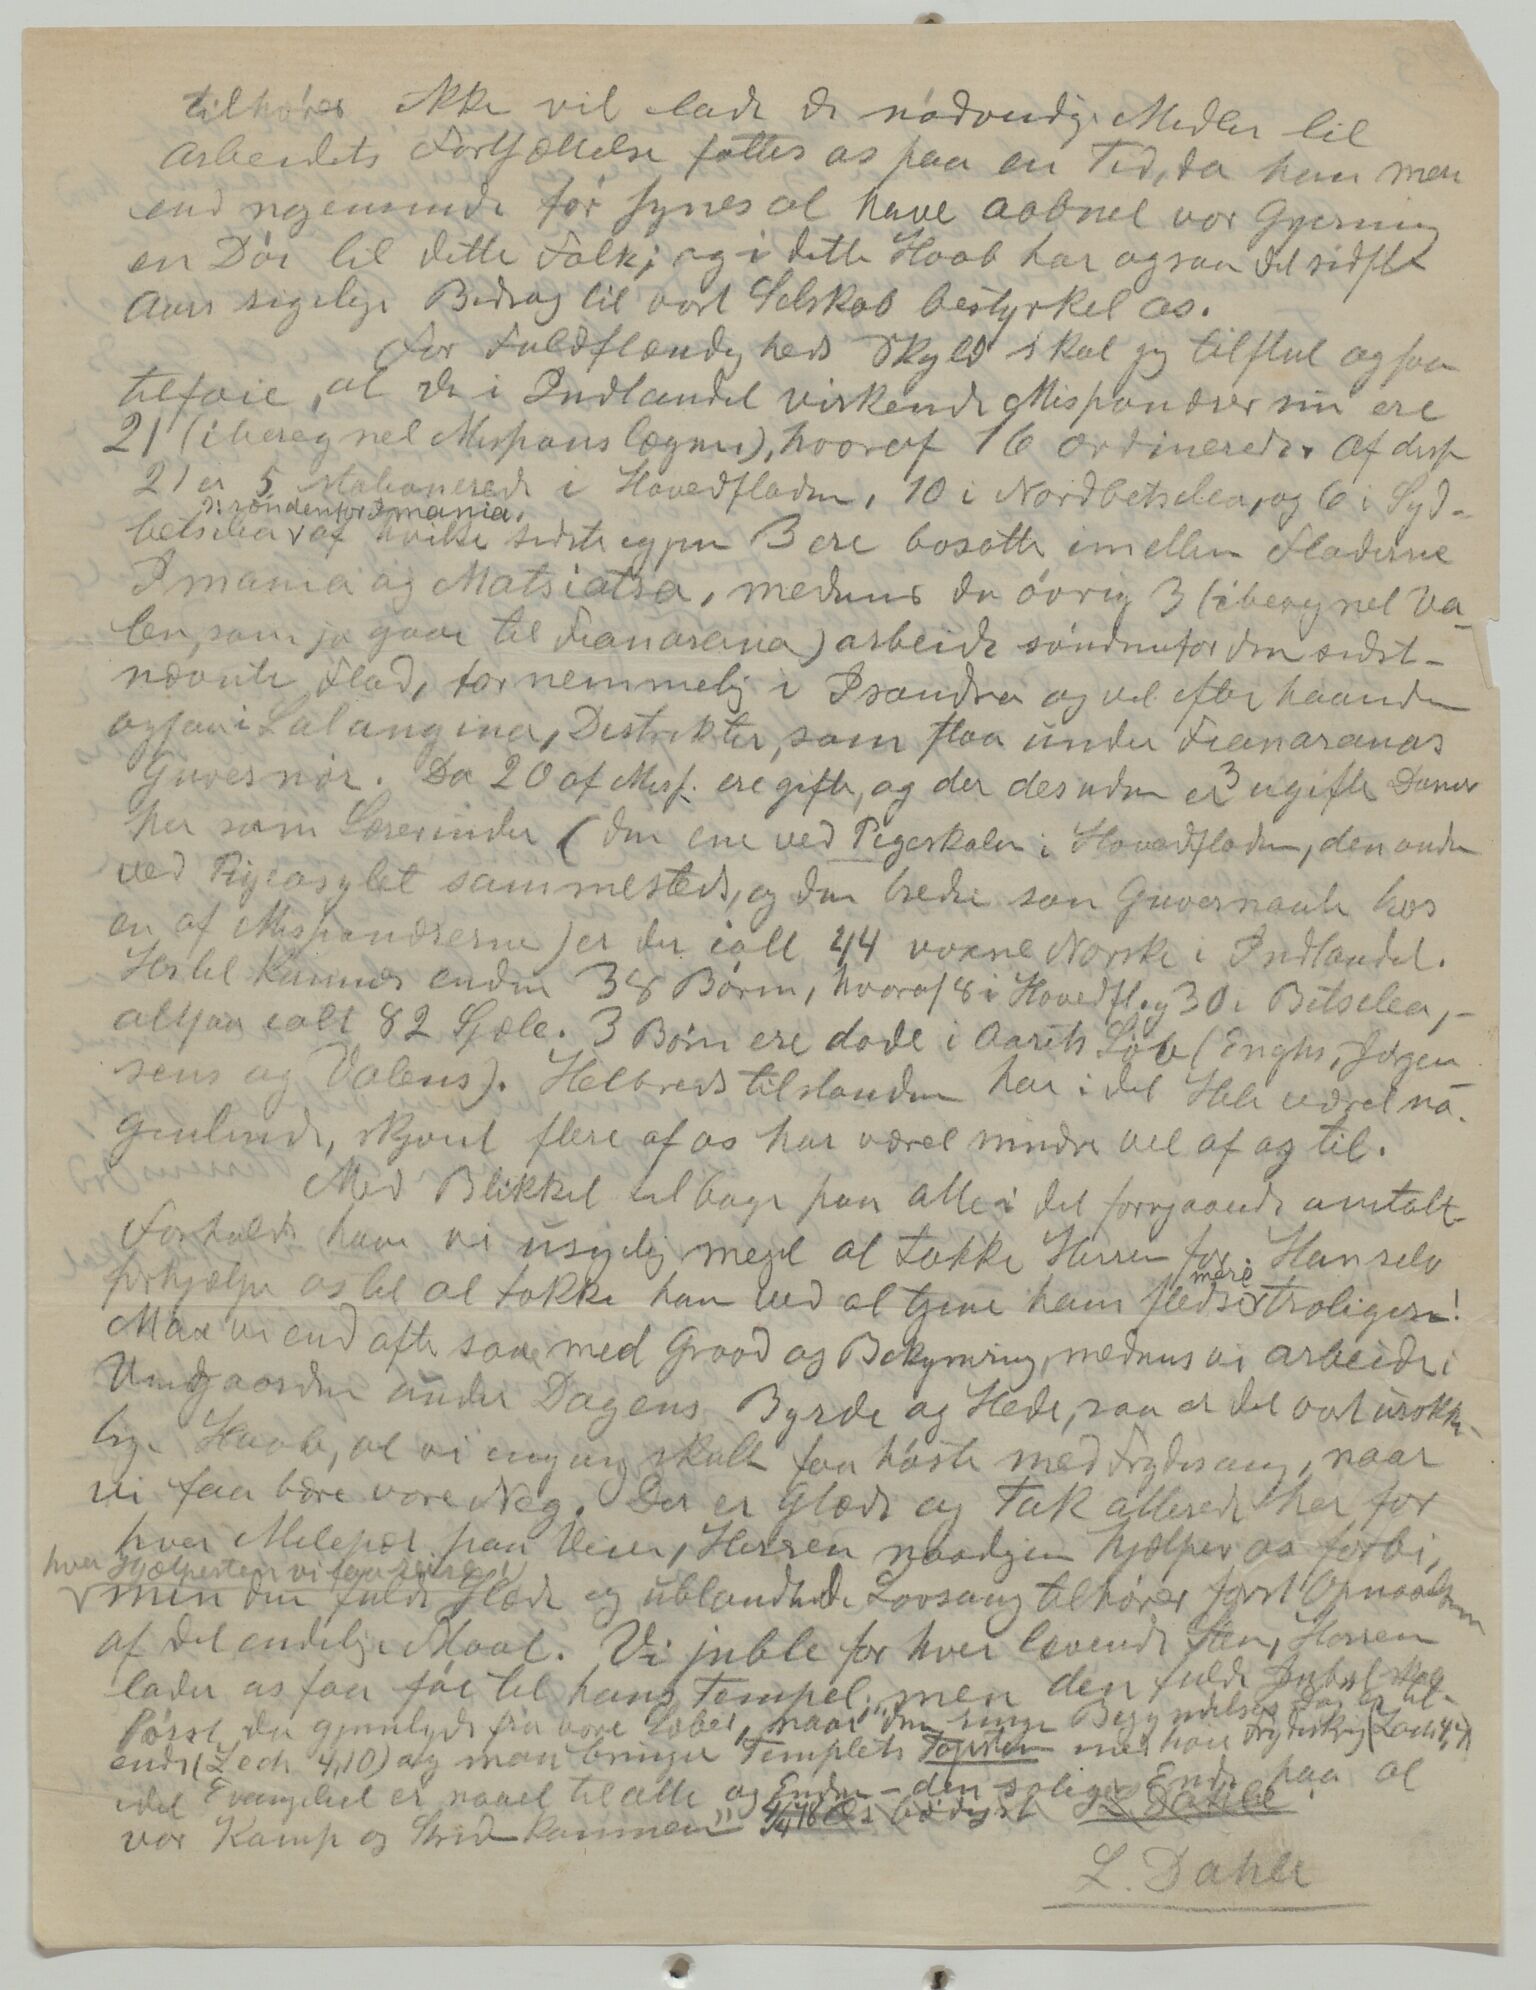 tilhører ikke vil lade de nødvendige Midler til
Arbeidets Fortsættelse fattes os paa en Tid, da han mere
end nogensinde før synes at have aabnet vor Gjerning
en Dør til dette Folk; og i dette Haab har ogsaa det sidste
Aars rigelige Bidrag til vort Selskab bestyrket os.
For Fuldstændigheds Skyld skal jeg tilslut ogsaa
tilføie, at de i Indlandet virkende Missionærer nu ere
21 (iberegnet Missionslægen), hvoraf 16 ordinerede. Af disse
21 er 5 stationerede i Hovedstaden, 10 i Nordbetsileo, og 6 i Syd-
betsileo ɔ: søndenfor Imania, af hvilke sidste igjen 3 ere bosatte imellem Floderne
Imania og Matsiatra, medens de øvrige 3 (iberegnet Va-
len, som jo gaar til Fianarana) arbeide søndenfor den sidst-
nævnte Flod, fornemmelig i Isandra og vel efterhaanden
ogsaa i Lalangina, Distrikter, som staa under Fianaranas
Guvernør. Da 20 af Miss. ere gifte, og der desuden er 3 ugifte Damer
her som Lærerinder (den ene ved Pigeskolen i Hovedstaden, den anden
ved Pigeasylet sammesteds, og den tredie som Guvernante hos
en af Missionærerne) er der ialt 44 voxne Norske i Indlandet.
Hertil kommer endnu 38 Børn, hvoraf 8 i Hovedst. og 30 i Betsileo, -
altsaa ialt 82 Sjæle. 3 Børn ere døde i Aarets Løb (Enghs, Jørgen-
sens og Valens). Helbredstilstanden har i det Hele været no-
genlunde, skjønt flere af os har været mindre vel af og til.
Med Blikket tilbage paa alle i det foregaaende omtalte
Forholde have vi usigelig meget at takke Herren for. Han selv
forhjælpe os til at takke ham ved at tjene ham stedse mere troligere!
Maa vi end ofte saa med Graad og Bekymring, medens vi arbeide i
Vingaarden under Dagens Byrde og Hede, saa er det vort urokke-
lige Haab, at vi engang skulle faa høste med Frydesang, naar
vi faa bære vore Neg. Der er Glæde og Tak allerede her for
hver Milepæl paa Veien, Herren naadigen hjælper os forbi,
hver Hjælpesten vi faa reise,
men den fulde Glæde og ublandede Lovsang tilhører først Opnaaelsen
af det endelige Maal. Vi juble for hver levende Sten, Herren
lader os faa føie til hans Tempel, men den fulde Jubel skal
først da gjenlyde fra vore Læber, naar "den ringe Begyndelses Dag er til-
ende (Zech 4,10) og man bringer Templets Topsten med høie Frydeskrig (Zach 4,7)
idet Evangeliet er naaet til alle og Enden - den salige Ende paa al
vor Kamp og Strid kommen"
L. Dahle
L. Dahle